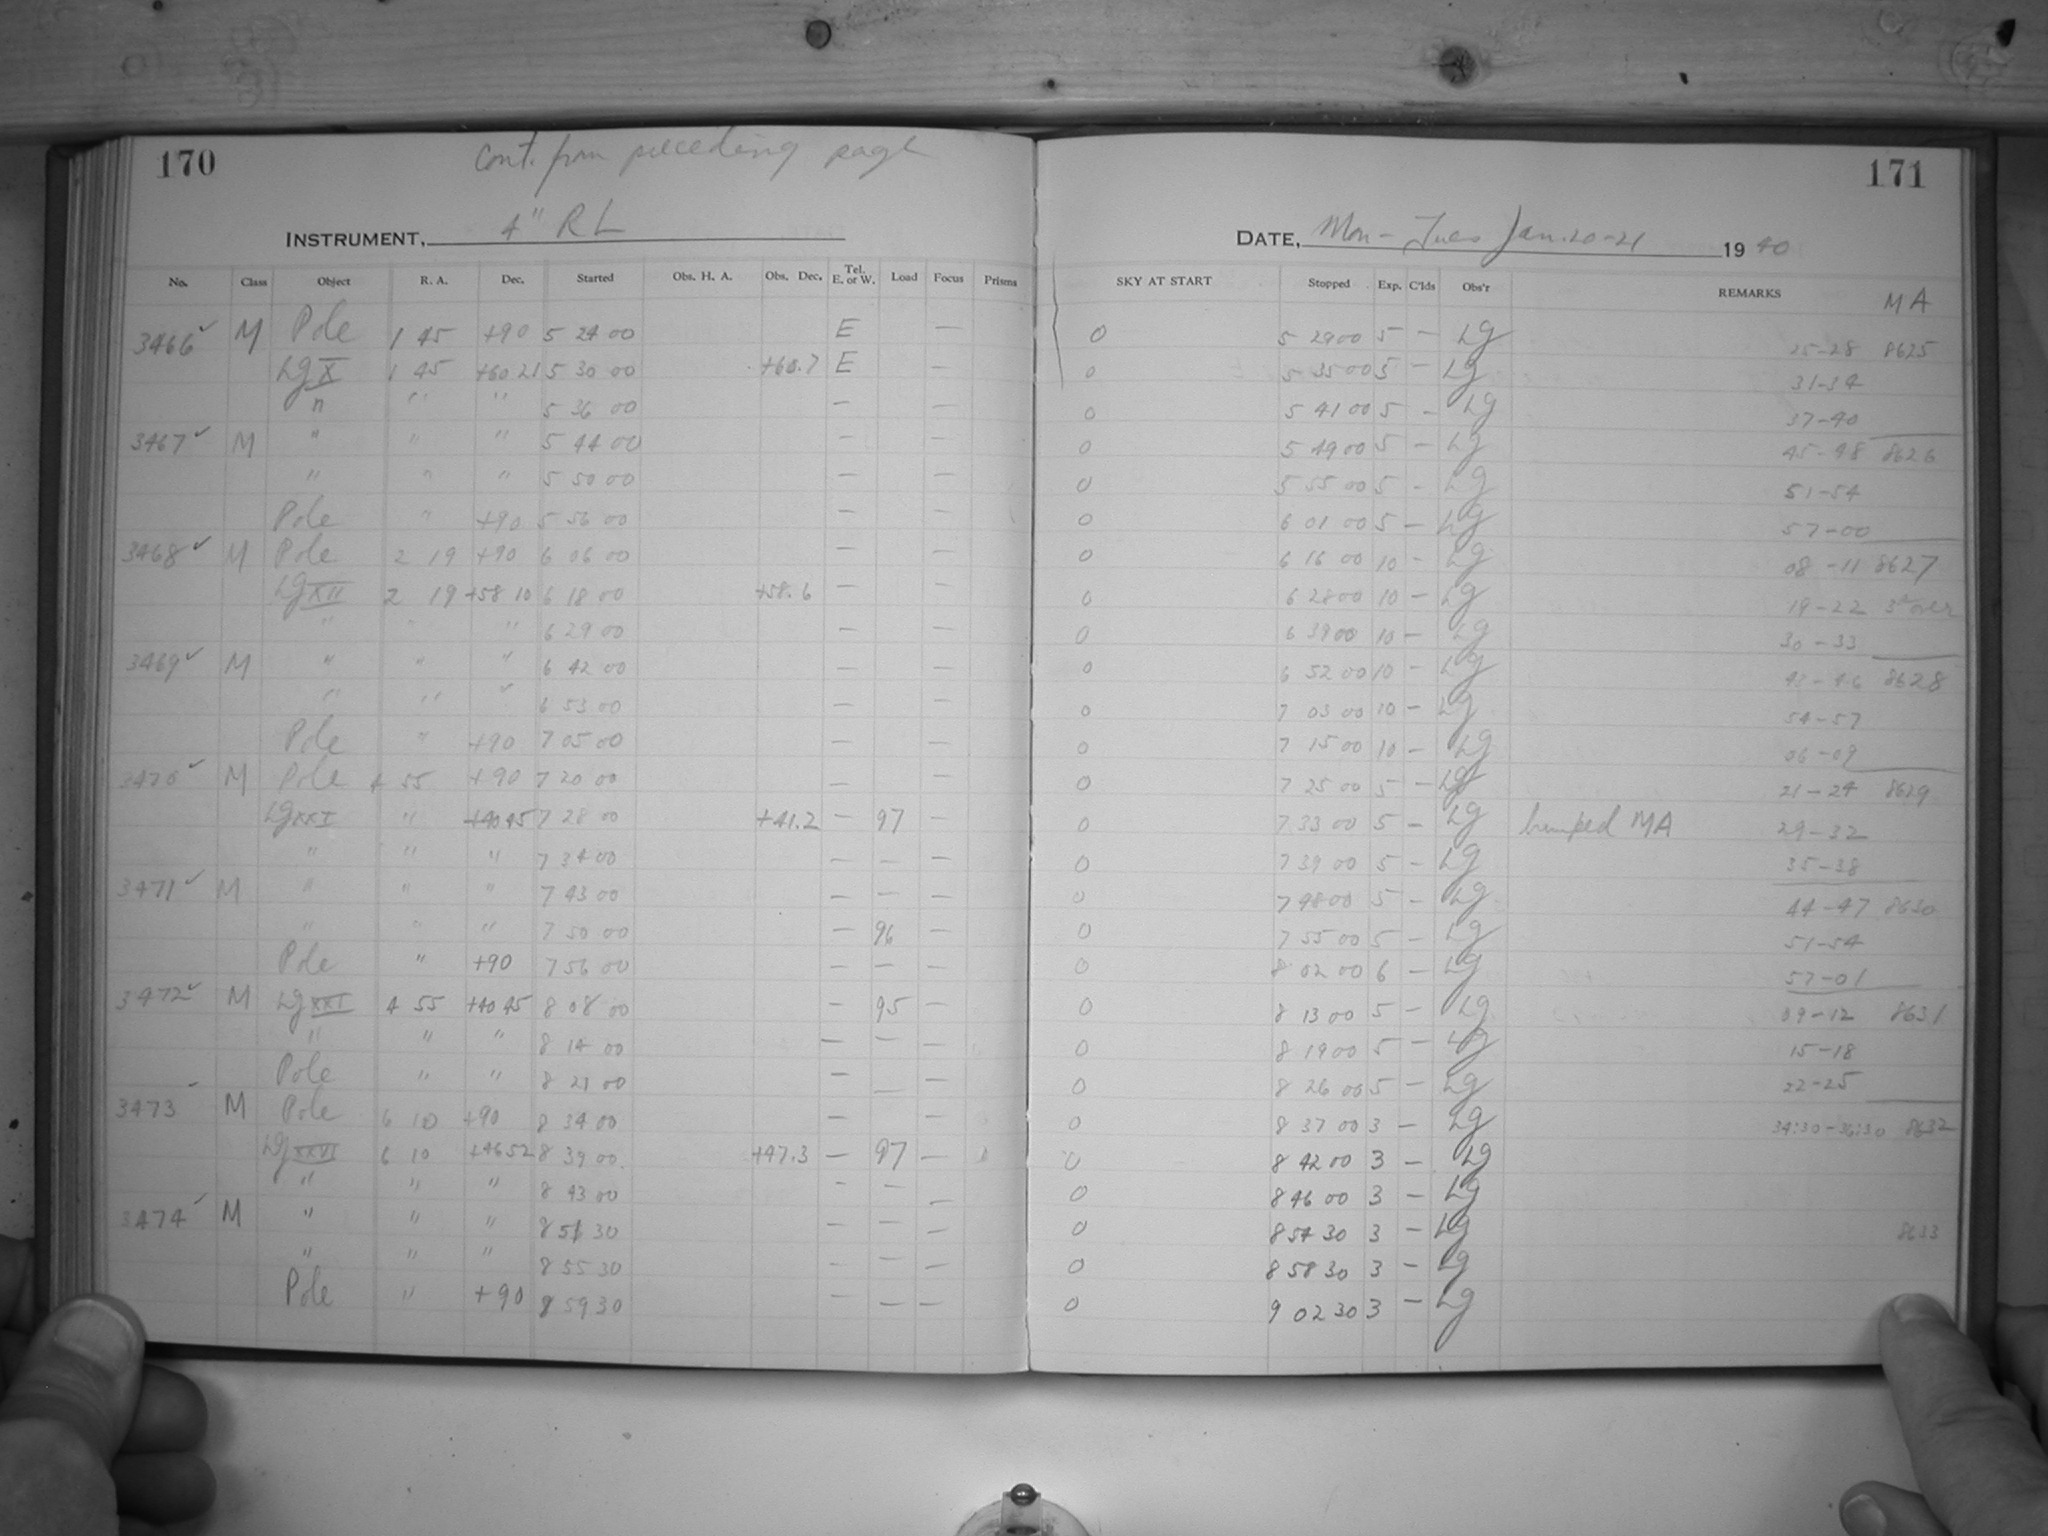 170
Cont. from preceding page
171
INSTRUMENT, 4" RL
DATE, Mon - Tues Jan. 20-21 1940
No. Class Object R. A. Dec. Started Obs. H. A. Obs. Dec. Tel. E. or W. Load Focus Prisms SKY AT START Stopped Exp. C'lds Obs'r REMARKS MA
3466 ✓ M Pole 1 45 +90 5 24 00 E — 0 5 29 00 5 — Lg 25-28 8625
Lg X 1 45 +60 21 5 30 00 +60.7 E — 0 5 35 00 5 — Lg 31-34
" " " 5 36 00 — — 0 5 41 00 5 — Lg 37-40
3467 ✓ M " " " 5 44 00 — — 0 5 49 00 5 — Lg 45-48 8626
" " " 5 50 00 — — 0 5 55 00 5 - Lg 51-54
Pole " +90 5 56 00 — — 0 6 01 00 5 — Lg 57-00
3468 ✓ M Pole 2 19 +90 6 06 00 — — 0 6 16 00 10 — Lg 08-11 8627
Lg XII 2 19 +58 10 6 18 00 +58.6 — 0 6 28 00 10 — Lg 19-22
" " " 6 29 00 — — 0 6 39 00 10 — Lg 30-33
3469 ✓ M " " " 6 42 00 — — 0 6 52 00 10 — Lg 43-46 8628
" " " 6 53 00 — — 0 7 03 00 10 — Lg 54-57
Pole " +90 7 05 00 — — 0 7 15 00 10 — Lg 06-09
3470 ✓ M Pole 4 55 +90 7 20 00 — — 0 7 25 00 5 — Lg 21-24 8629
Lg XXI " +40 45 7 28 00 +41.2 — 97 — 0 7 33 00 5 — Lg bumped MA 29-32
" " " 7 34 00 — — — 0 7 39 00 5 — Lg 35-38
3471 ✓ M " " " 7 43 00 — — — 0 7 48 00 5 — Lg 44-47 8630
" " " 7 50 00 — 96 — 0 7 55 00 5 — Lg 51-54
Pole " +90 7 56 00 — — — 0 8 02 00 6 — Lg 57-01
3472 ✓ M Lg XXI 4 55 +40 45 8 08 00 — 95 — 0 8 13 00 5 — Lg 09-12 8631
" " " 8 14 00 — — — 0 8 19 00 5 — Lg 15-18
Pole " " 8 21 00 — — — 0 8 26 00 5 — Lg 22-25
3473 ✓ M Pole 6 10 +90 8 34 00 — — — 0 8 37 00 3 — Lg 34:30-36:30 8632
Lg XXVI 6 10 +46 52 8 39 00 +47.3 — 97 — 0 8 42 00 3 — Lg
" " " 8 43 00 — — — 0 8 46 00 3 — Lg
3474 ✓ M " " " 8 51 30 — — — 0 8 54 30 3 — Lg 8633
" " " 8 55 30 — — — 0 8 58 30 3 — Lg
Pole " +90 8 59 30 — — — 0 9 02 30 3 — Lg